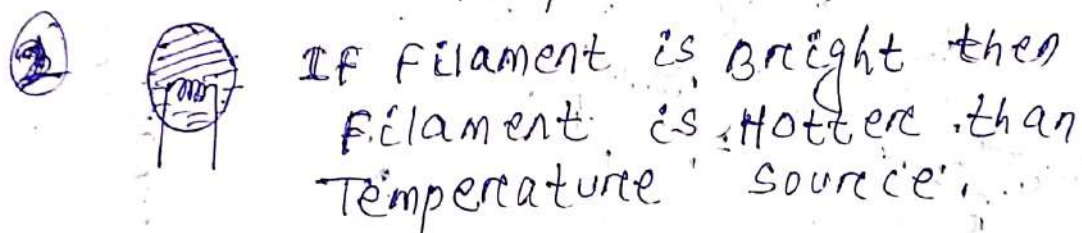 2 If Filament is Bright then
Filament is Hotter than
Temperature source.